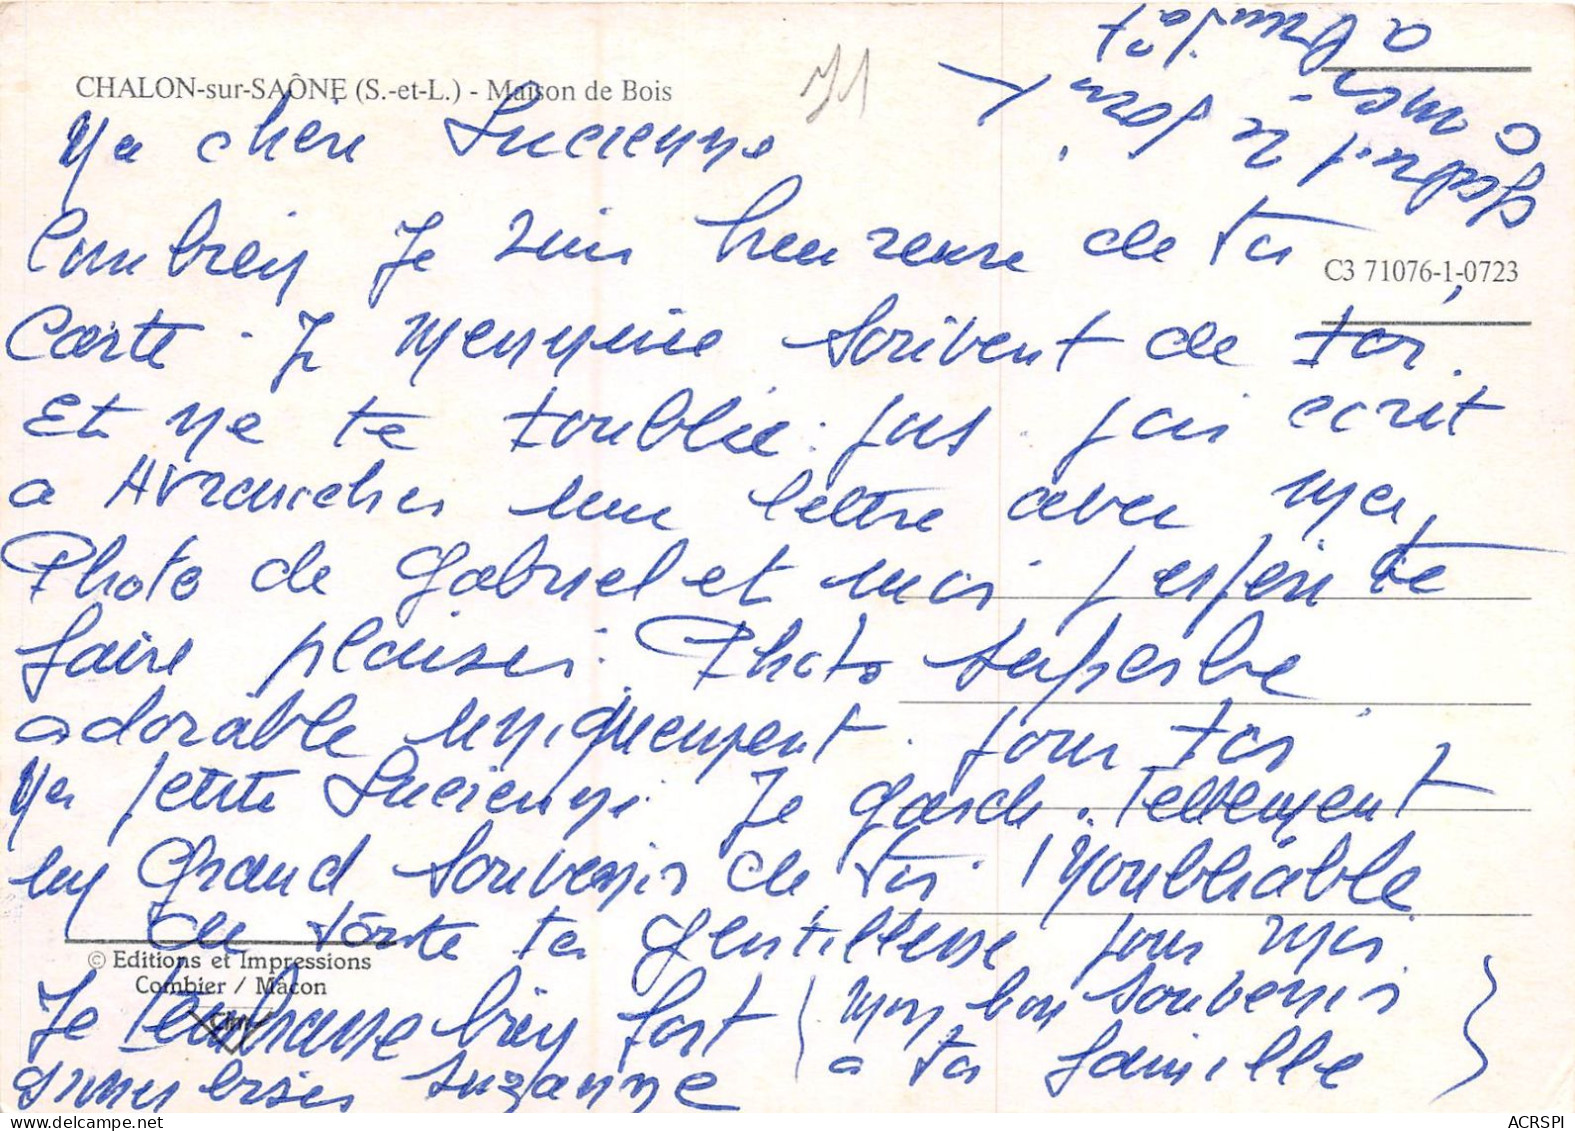 CHALON-sur-SAÔNE (S.-et-L.) - Maison de Bois
71
Ma chere Lucienne
Combien Je suis heureuse de ta
C3 71076-1-0723
Carte. Je m'ennuie souvent de toi.
Et ne te t'oublie pas j'ai ecrit
a Avranches une lettre avec ma
Photo de Gabriel et moi j'espère te
faire plaisir. Photo superbe
adorable uniquement pour toi
Ma petite Lucienne Je garde tellement
un Grand Souvenir de toi inoubliable
de toute ta gentillesse pour moi
© Editions et Impressions
Combier / Mâcon
CIM
Je t'embrasse bien fort
Suzanne
(Mon bon souvenir
a ta famille)
a bientôt